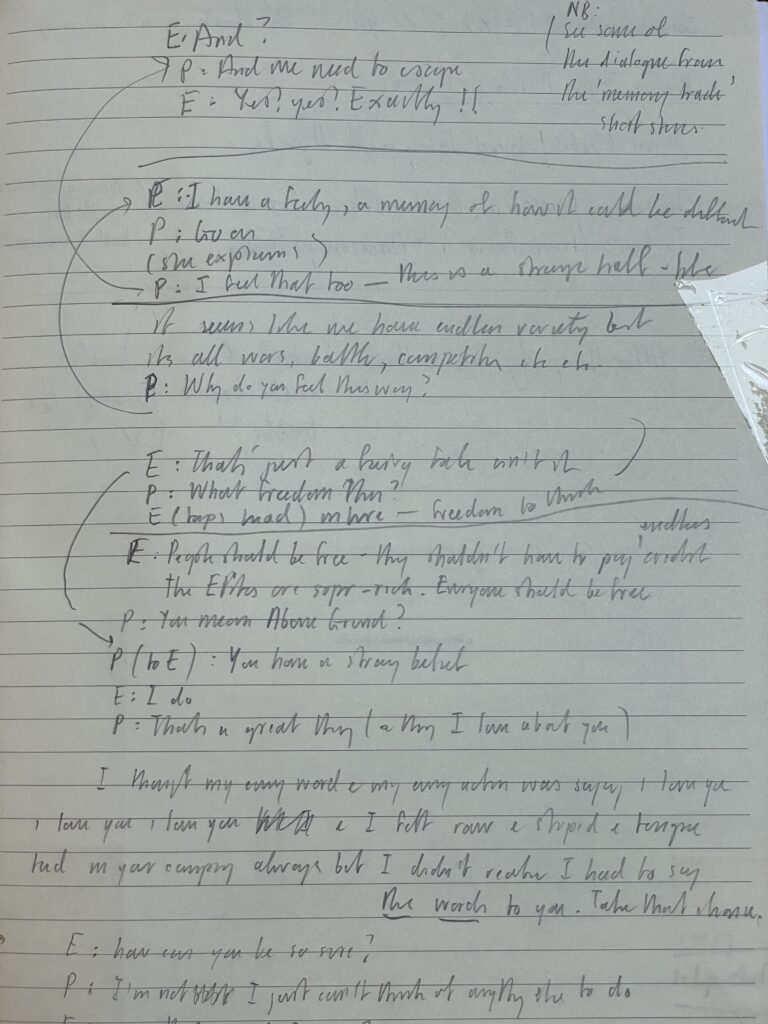 E: And?
P: And we need to escape
E: Yes? yes? Exactly!!
NB:
See some of
the dialogue from
the 'memory trade'
short stories.
E: I have a feeling, a memory of how it could be different
P: Go on
(she explains)
P: I feel that too — this is a strange half-life
it seems like we have endless variety but
its all wars, battle, competition etc etc.
P: Why do you feel this way?
E: That's just a fairy tale isn't it
P: What freedom then?
E (taps head) in here — freedom to think
E: People should be free - they shouldn't have to pay endless credit
the Elites are super-rich. Everyone should be free
P: You mean Above Ground?
P (to E): You have a strong belief
E: I do
P: That's a great thing (a thing I love about you)
I thought my every word & my every action was saying i love you
i love you i love you & I felt raw & stupid & tongue
tied in your company always but I didn't realise I had to say
the words to you. Take that chance.
E: how can you be so sure?
P: I'm not I just can't think of anything else to do